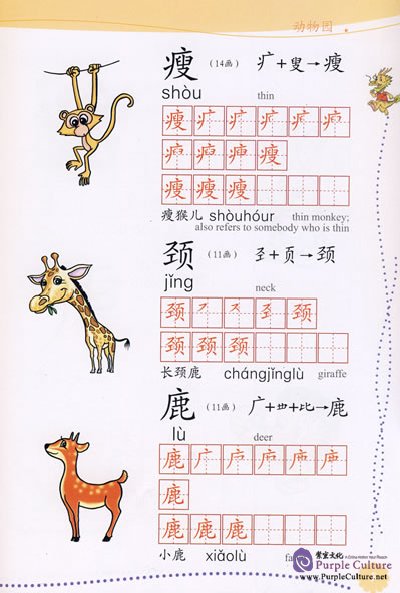 动物园
瘦 (14画) 疒+叟→瘦
shòu thin
瘦
瘦 瘦 瘦
瘦猴儿 shòuhóur thin monkey;
also refers to somebody who is thin
颈 (11画) 𢀖+页→颈
jǐng neck
颈 颈
颈 颈 颈
长颈鹿 chángjǐnglù giraffe
鹿 (11画)
lù deer
鹿 广
鹿
鹿 鹿 鹿
小鹿 xiǎolù
紫宝文化 Purple Culture
www.PurpleCulture.net